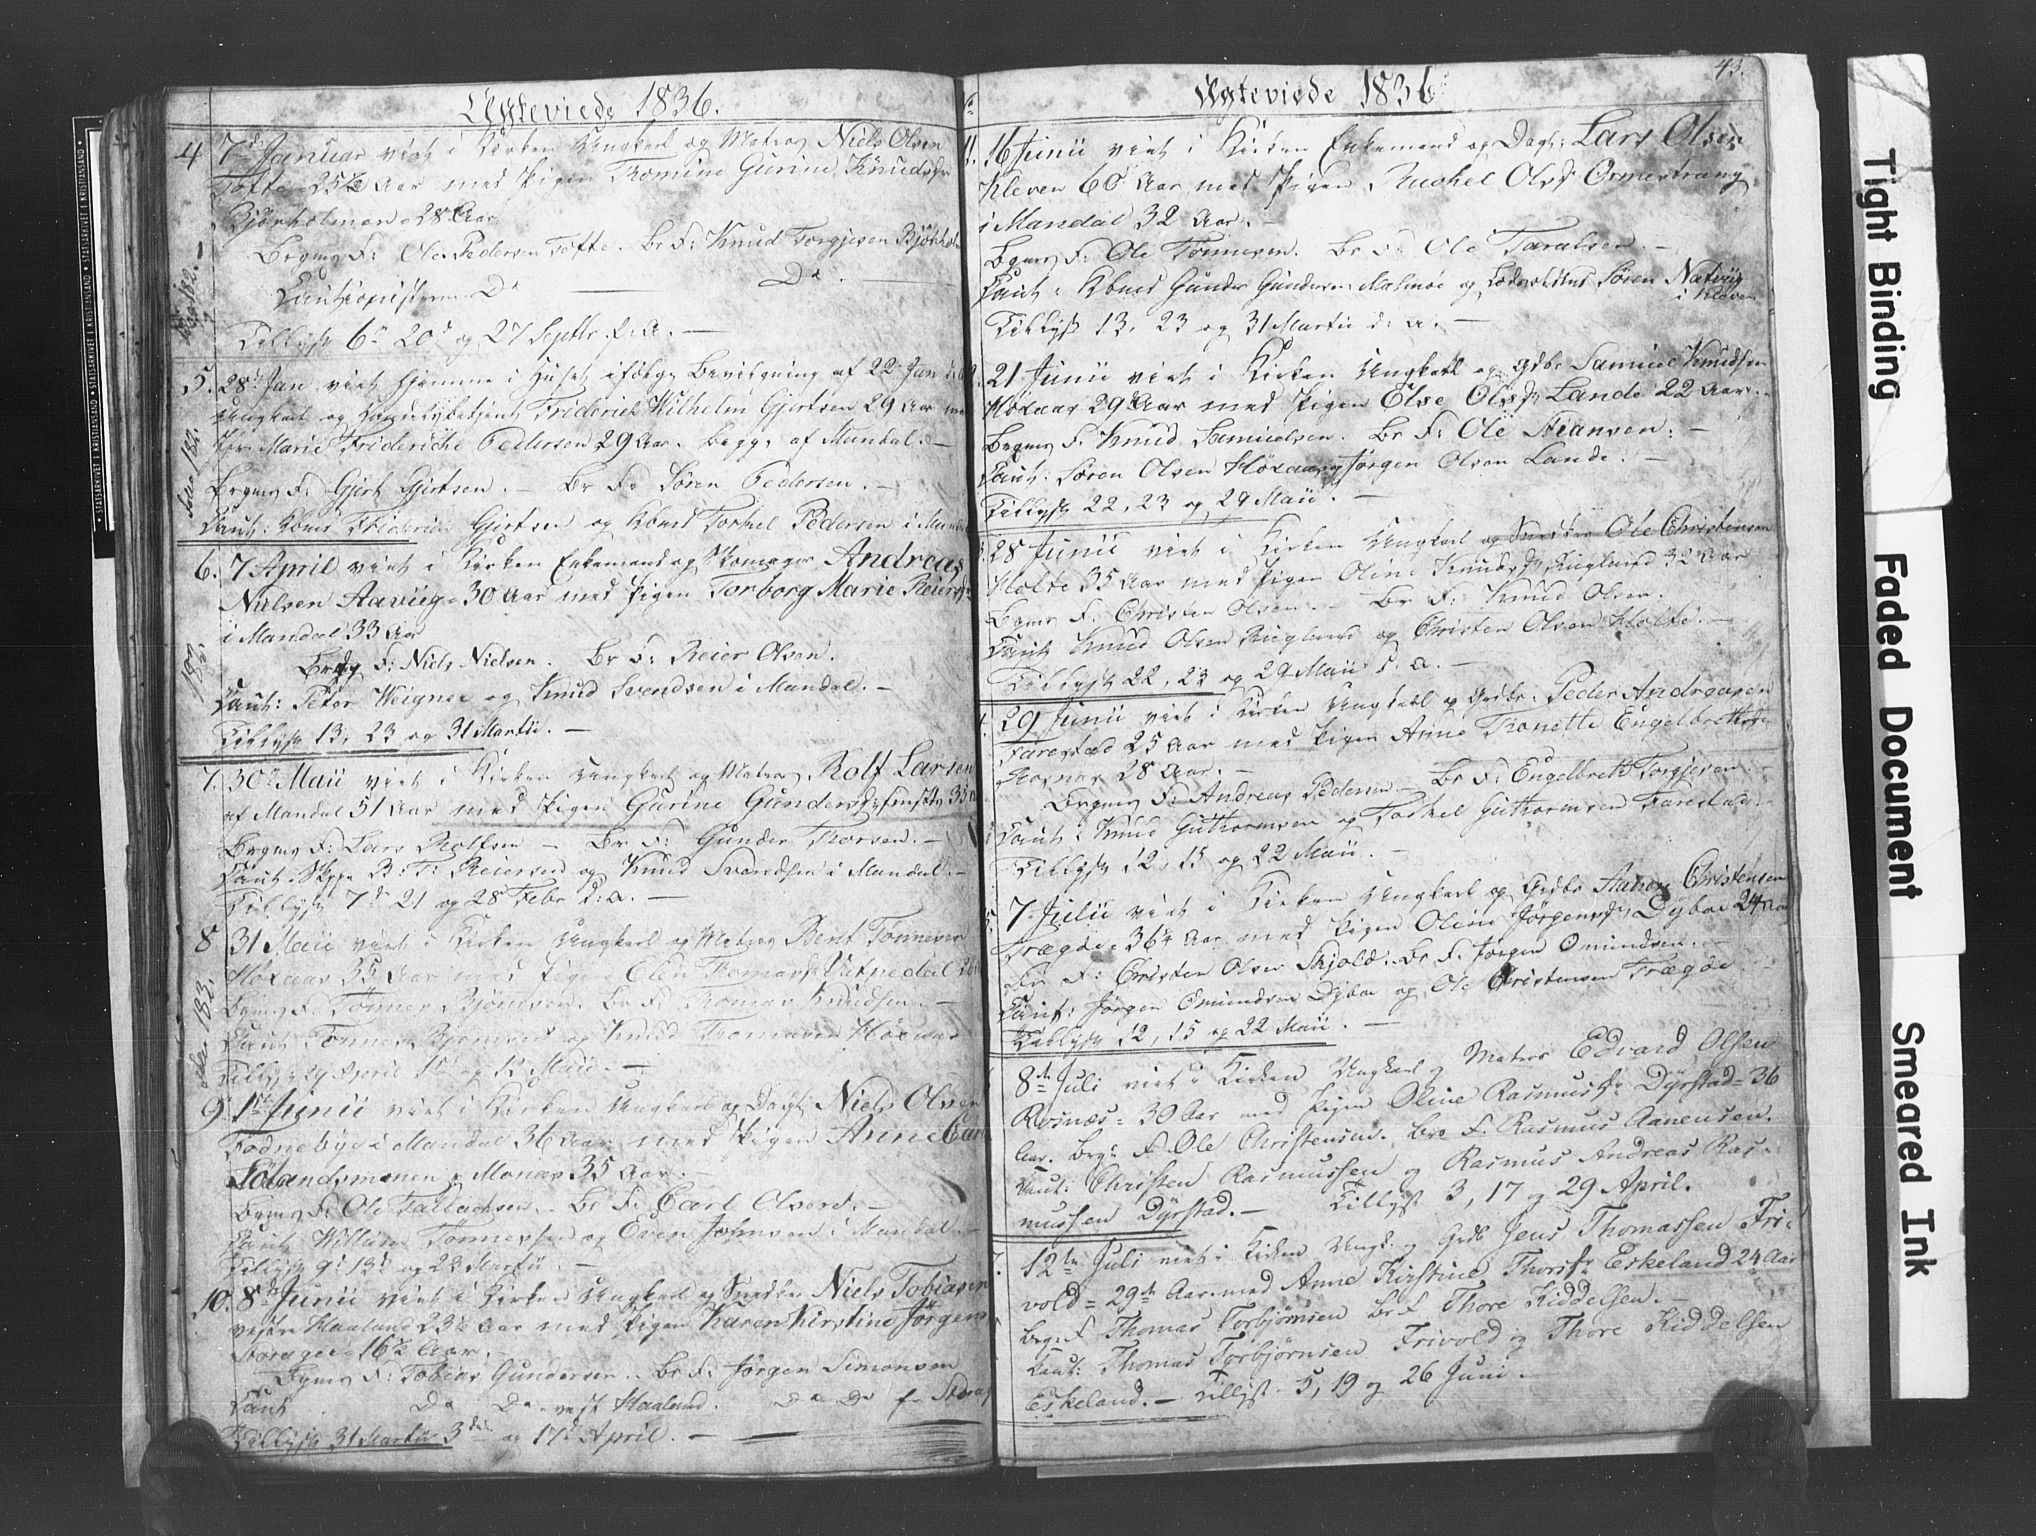 Ægteviede 1836.
4 7de Januar viet i Kirken Ungkarl og Matros Niels Olsen
Tofte 25½ Aar med Pigen Thomine Gurine Knudsdr
Bjørnholmen 28 Aar
Brgms F: Ole Pedersen Tofte. Br F: Knud Torgjesen
Cautionisterne Do Do
Tillyst 6te 20de og 27 Septbr f. A. —
5. 28de Jan viet hjemme i Huset ifølge Bevilgning af 22 Jan
Ungkarl og Friderich Wilhelm Gjertsen 29 Aar med
Marie Frideriche Pedersen 29 Aar. begge af Mandal. —
Brgms F: Gjert Gjertsen. — Br F: Søren Pedersen. —
Caut: Friderich Gjertsen og Torkel Pedersen i Mandal
6. 7 April viet i Kirken Enkemand og Skomager Andreas
Nielsen Aavig 30 Aar med Pigen Torborg Marie Reiersdr
i Mandal 33 Aar
F: Niels Nielsen. Br F: Reier Olsen.
Caut: Peter Weigner og Knud Svendsen i Mandal. —
Tillyst 13, 23 og 31 Martii. —
7. 30te Maii viet i Kirken Ungkarl og Matros Rolf Larsen
af Mandal 51 Aar med Pigen Gurine Gundersdr 35
Brgms F: Lars Rolfsen — Br F: Gunder Thorsen. —
Caut: Skipp B. T. Reiersen og Knud Svendsen i Mandal. —
Tillyst 7de 21 og 28 Febr d: a. —
8 31 Maii viet i Kirken Ungkarl og Matros Bent Tønnesen
Høxaas 35 Aar med Pigen Elen Thomasdr Vatnedal
Brgms F: Tønnes Bjørnsen. Br F: Thomas Knudsen. —
Caut Tønnes Bjørnsen og Knud Thomasen Høxaas
Tillyst 29 April 1ste og 12 Maii. —
9. 1ste Junii viet i Kirken Ungkarl og Dagl: Niels Olsen
i Mandal 36 Aar med Pigen Anne Carls
35 Aar. —
Brgms F: Ole Tallachsen. — Br F: Carl Olsen. —
Caut Willum Tønnesen og Even Johnsen i Mandal. —
Tillyst 9de 13de og 23 Martii. —
10. 8de Junii viet i Kirken Ungkarl og Snedker Niels Tobiasen
vestre Haaland 23½ Aar med Pigen Karen Kirstine Jørgens
Storager 16½ Aar. —
Brgms F: Tobias Gundersen. Br F: Jørgen Simonsen
Caut Do Do vest Haaland. Do Do
Tillyst 31 Martii 3die og 17de April. —
43.
Ægteviede 1836
11. 16 Junii viet i Kirken Enkemand og Dagl: Lars Olsen
Kleven 60 Aar med Pigen Rachel Olsdr Ormestrang
i Mandal 32 Aar. —
Brgms F: Ole Tønnesen. Br F: Ole Taralsen. —
Caut: Gunder Gundersen Malmø og Søren Natvig
i Kleven
Tillyst 13, 23 og 31 Martii d: a. —
21 Junii viet i Kirken Ungkarl og Gdbr Samuel Knudsen
Høxaas 29 Aar med Pigen Else Olsdr Lande 22 Aar. —
Brgms F. Knud Samuelsen. Br F: Ole Stiansen: —
Caut: Søren Olsen Høxaas og Jørgen Olsen Lande. —
Tillyst 22, 23 og 29 Maii. —
28 Junii viet i Kirken Ungkarl og Snedker Ole Christensen
Holte 35 Aar med Pigen Oline Knudsdr Rugland 32 Aar
Brgms F: Christen Olsen. — Br F: Knud Olsen.
Caut Knud Olsen Rugland og Christen Olsen Holte. —
Tillyst 22, 23 og 29 Maii d. a. —
29 Junii viet i Kirken Ungkarl og Grdbr: Peder Andreasen
Farestad 25 Aar med Pigen Anne Tronette Engelbretsdr
Rosnæs 28 Aar. —
Brgms F: Andreas Pedersen — Br F: Engelbrett Torgjesen. —
Caut: Knud Guthormsen og Torkel Guthormsen Farestad. —
Tillyst 12, 15 og 22 Maii. —
7. Julii viet i Kirken Ungkarl og Grdbr Aanen Christensen
Trægde 36¼ Aar med Pigen Oline Jørgensdr Dybo 24 Aar
Br F: Christen Olsen Skjold. Br F: Jørgen Omundsen. —
Caut: Jørgen Omundsen Dybo og Ole Christensen Trægde
Tillyst 12, 15 og 22 Maii. —
8de Juli viet i Kirken Ungkarl og Matros Edvard Olsen
Rosnæs = 30 Aar med Pigen Oline Rasmusdr Dyrstad = 36
Aar. Brg: F. Ole Christensen. Bru F. Rasmus Aanensen.
Caut: Christen Rasmussen og Rasmus Andreas Ras-
mussen Dyrstad. — Tillyst 3, 17 og 29 April.
12te Juli viet i Kirken Ungk. og Grdb Jens Thomassen Fri-
vold = 29de Aar med Anne Kirstine Thorsdr Eskeland 24 Aar
Brg: F Thomas Torbjørnsen Br F. Thore Kiddelsen. —
Caut: Thomas Torbjørnsen Frivold og Thore Kiddelsen
Eskeland. — Tillyst. 5, 19 og 26 Juni. —
Tight Binding
Faded Document
Smeared Ink
STATSARKIVET I KRISTIANSAND